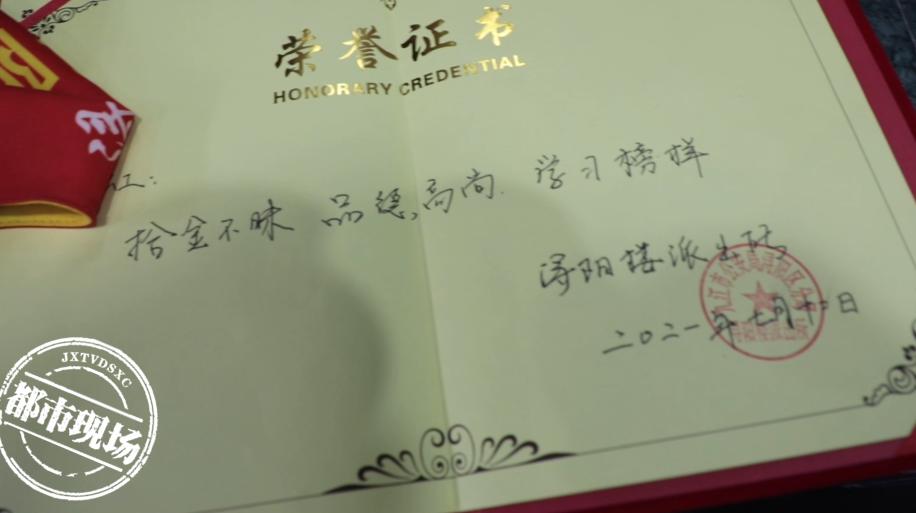 荣誉证书
HONORARY CREDENTIAL
江:
拾金不昧 品德高尚 学习榜样
浔阳楼派出所
二〇二一年七月十二日
JXTVDSXC
都市现场